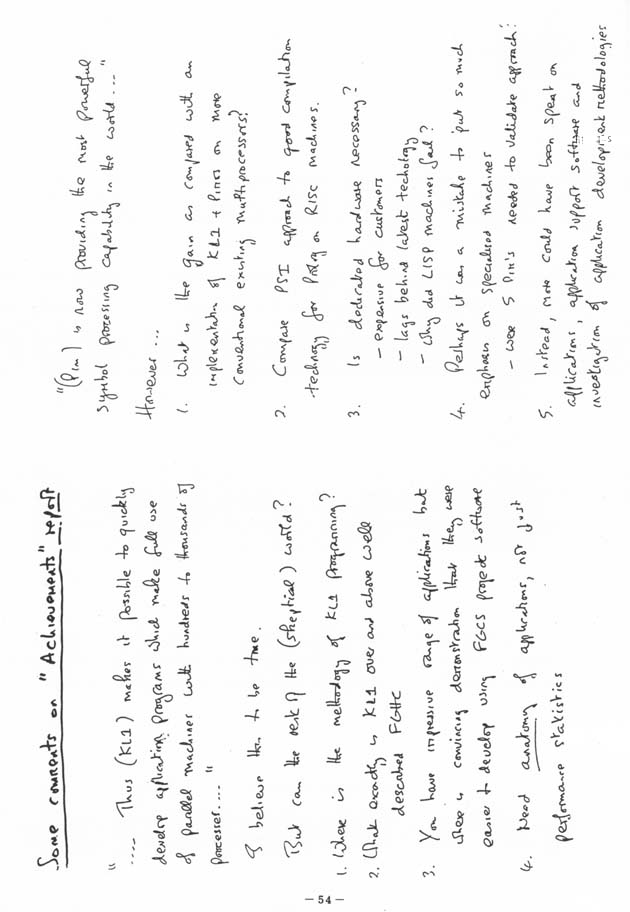 Some comments on "Achievements" report
".... Thus (KL1) makes it possible to quickly
develop application programs which make full use
of parallel machines with hundreds to thousands of
processes...."
I believe this to be true.
But can the rest of the (skeptical) world?
1. Where is the methodology of KL1 programming?
2. What exactly is KL1 over and above well
described FGHC
3. You have impressive range of applications but
where is convincing demonstration that they were
easier to develop using FGCS project software
4. Need anatomy of applications, not just
performance statistics
"(PIM) is now providing the most powerful
symbol processing capability in the world...."
However ...
1. What is the gain as compared with an
implementation of KL1 + PIMOS on more
conventional existing multiprocessors?
2. Compare PSI approach to good compilation
technology for Prolog on RISC machines.
3. Is dedicated hardware necessary?
- expensive for customers
- lags behind latest technology
- why did LISP machines fail?
4. Perhaps it was a mistake to put so much
emphasis on specialised machines
- were 5 PIM's needed to validate approach?
5. Instead, more could have been spent on
applications, application support software and
investigation of application development methodologies
- 54 -